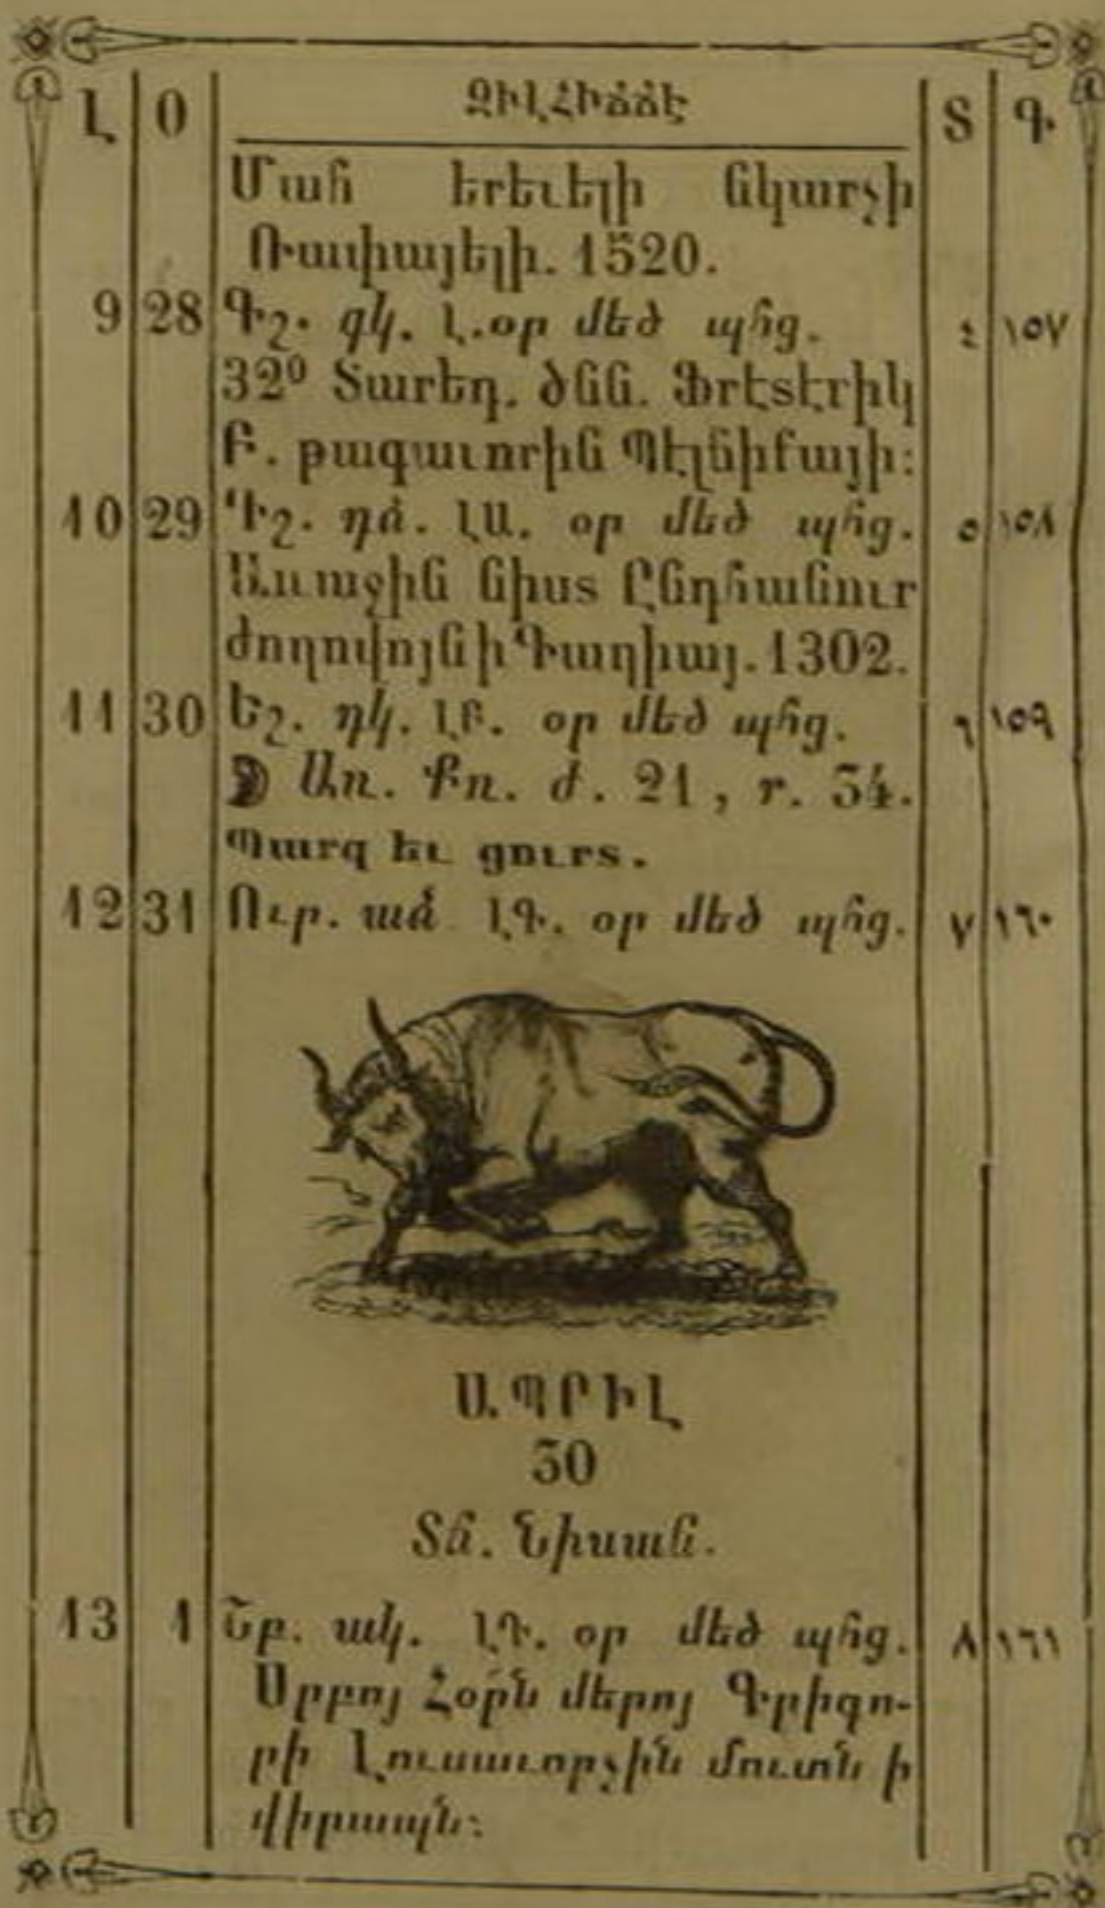 Լ Օ ԶԻԼՀԻՃՃԷ Տ Գ
Մահ երեւելի նկարչի
Ռափայելի. 1520.
9 28 Գշ. գկ. Լ. օր մեծ պհց. ٤ ١٥٧
32º Տարեդ. ծնն. Ֆրէտէրիկ
Բ. թագաւորին Պէլնիքայի։
10 29 Դշ. դձ. ԼԱ. օր մեծ պհց. ٥ ١٥٨
Առաջին նիստ Ընդհանուր
ժողովոյն ի Գաղիայ. 1302.
11 30 Եշ. դկ. ԼԲ. օր մեծ պհց. ٦ ١٥٩
Առ. Քռ. ժ. 21, ր. 34.
Պարզ եւ ցուրտ.
12 31 Ուր. աձ ԼԳ. օր մեծ պհց. ٧ ١٦٠
ԱՊՐԻԼ
30
Տճ. Նիսան.
13 1 Շբ. ակ. ԼԴ. օր մեծ պհց. ٨ ١٦١
Սրբոյ Հօրն մերոյ Գրիգո-
րի Լուսաւորչին մուտն ի
վիրապն։